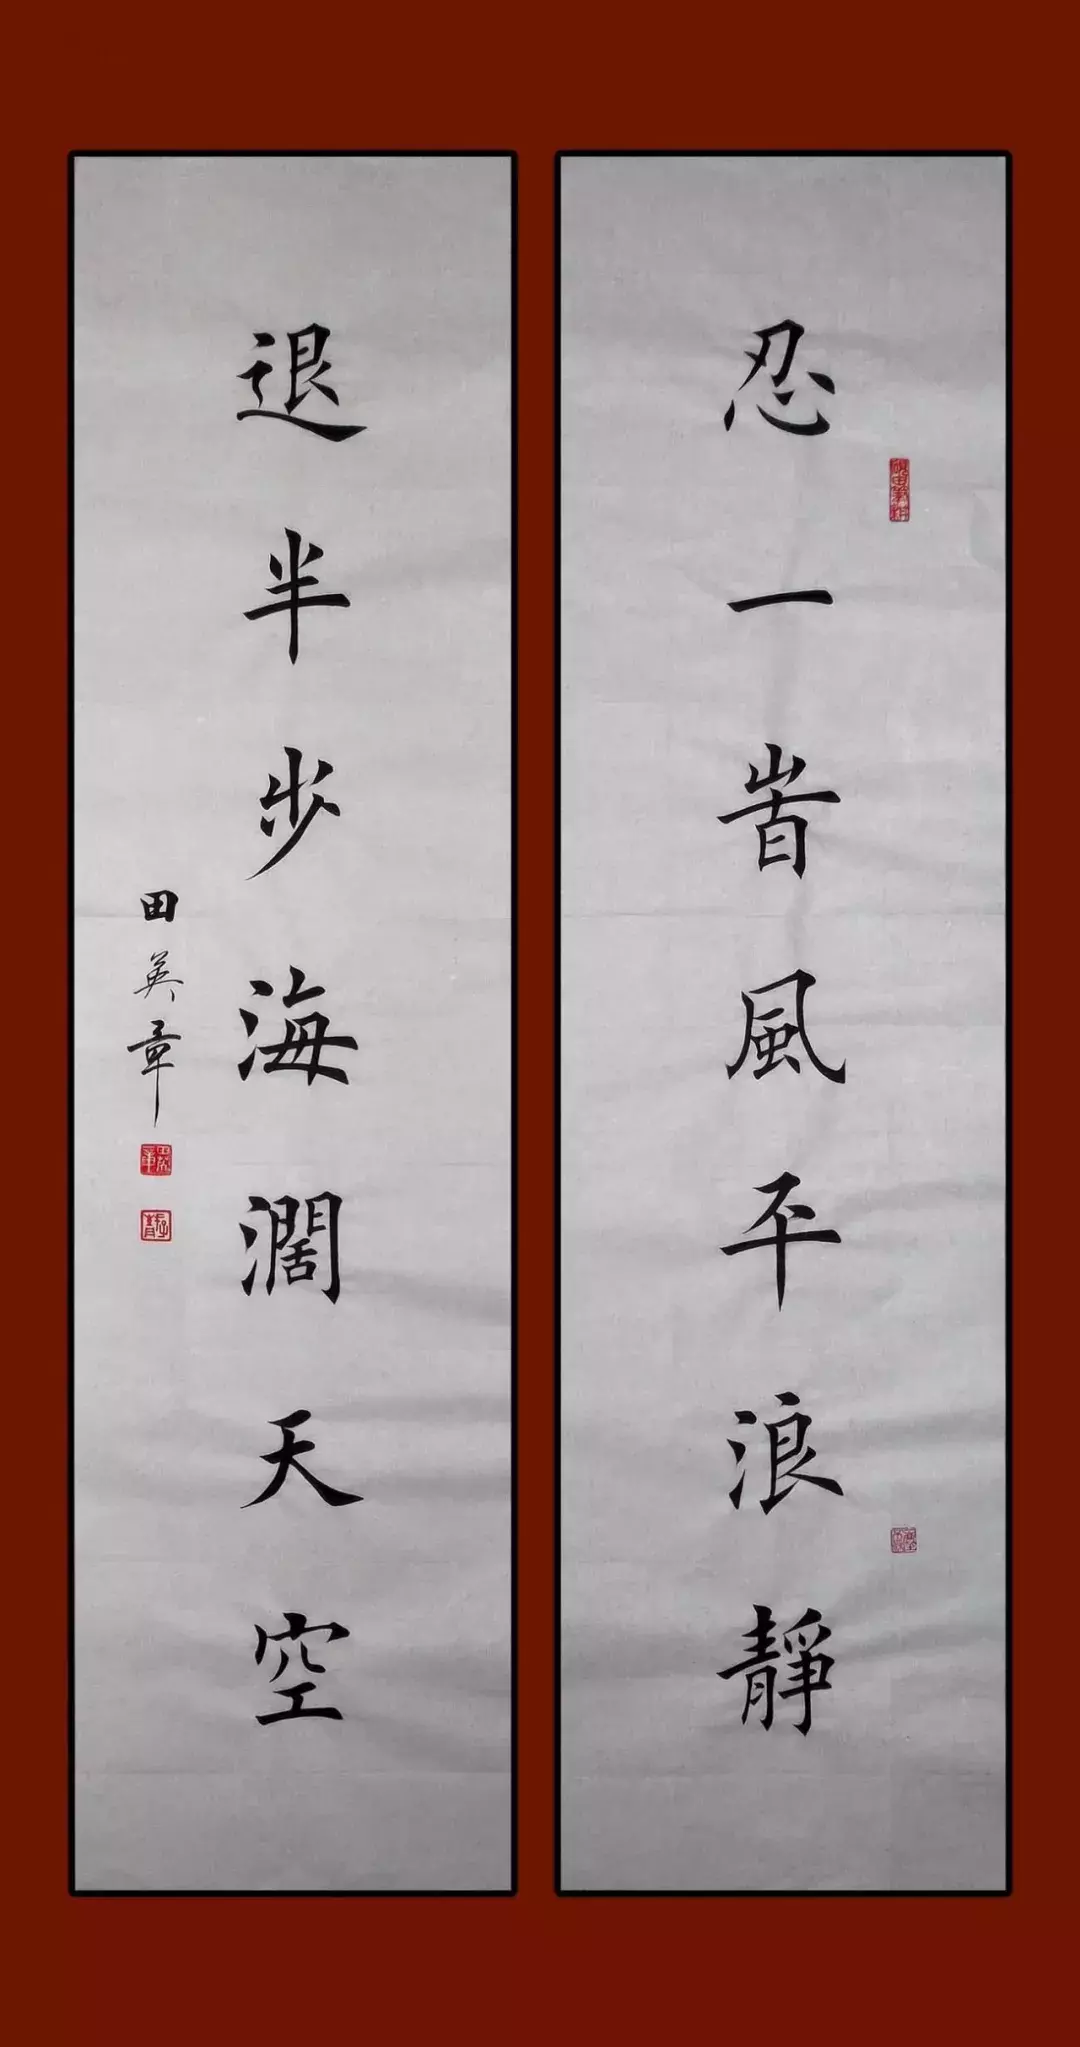 忍一旹風平浪靜
退半步海濶天空
田英章